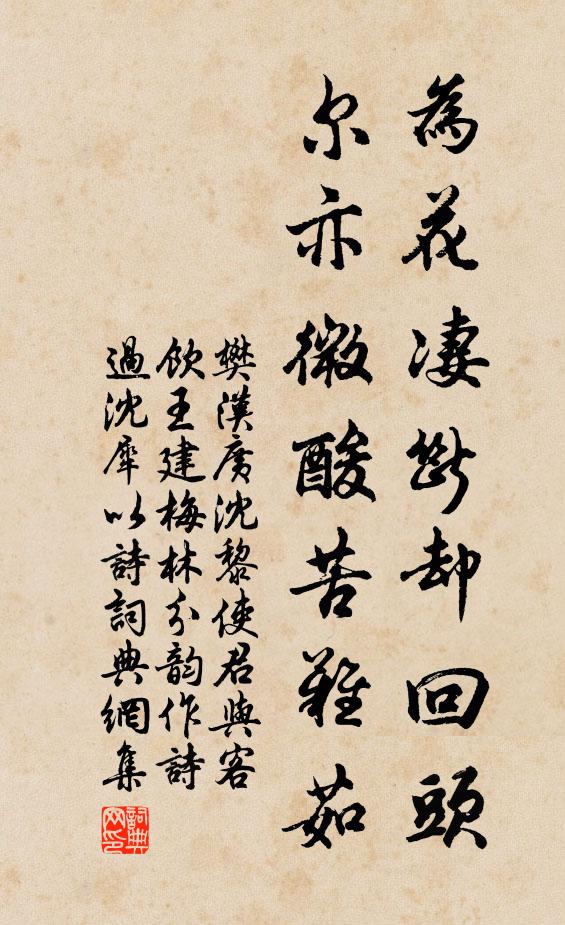 為花凄斷却回頭
尔亦微酸苦難茹
樊漢廣沈黎使君與客
飲王建梅林分韵作詩
過沈犀以詩詞典網集
詞典网印